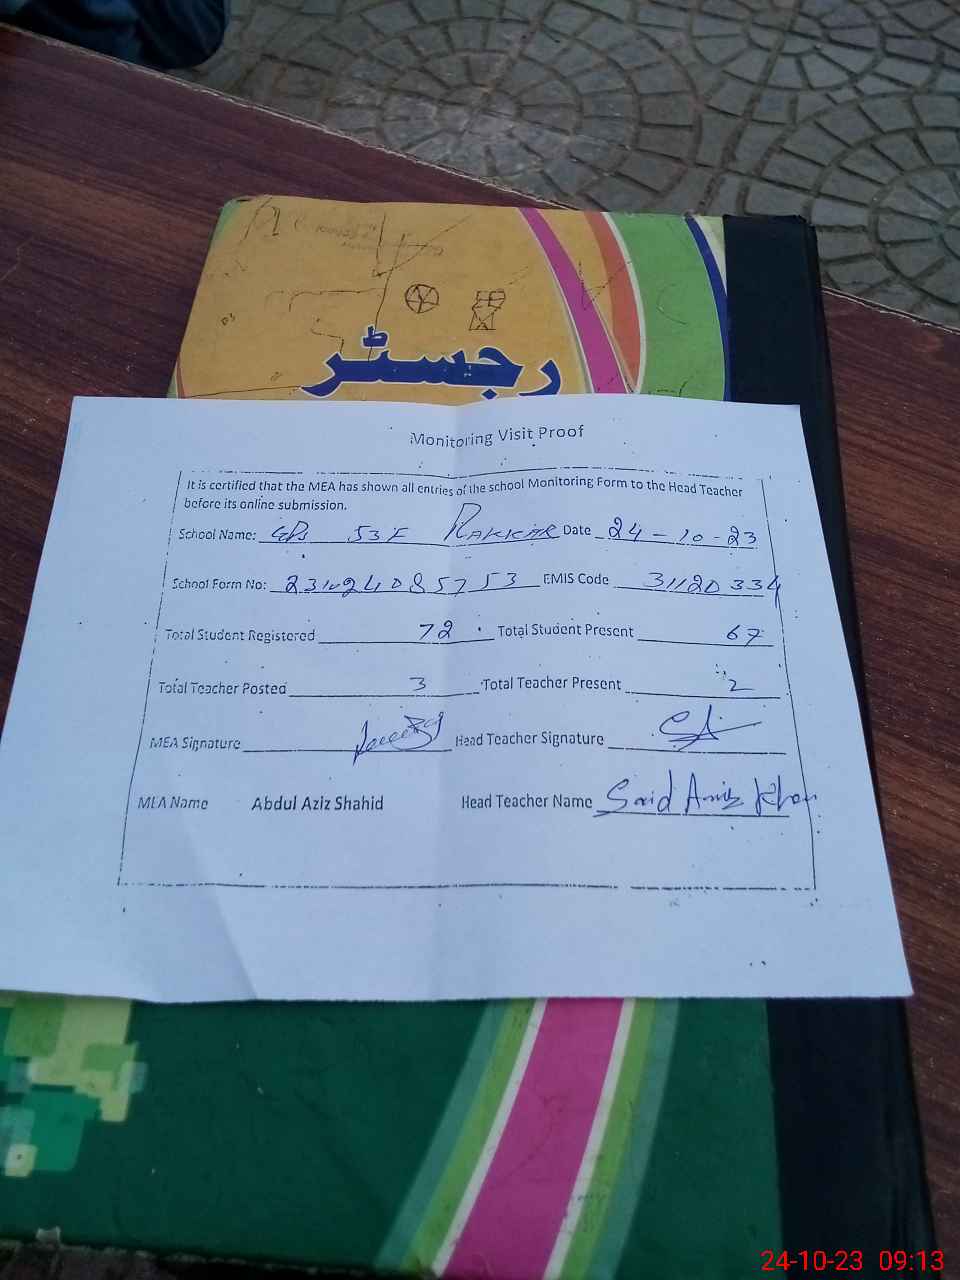 رجسٹر
Monitoring Visit Proof
It is certified that the MEA has shown all entries of the school Monitoring Form to the Head Teacher
before its online submission.
School Name: GPS 53F Date 24-10-23
School Form No: EMIS Code 31120334
Total Student Registered 72 Total Student Present 67
Total Teacher Posted 3 Total Teacher Present 2
MEA Signature Head Teacher Signature
MEA Name Abdul Aziz Shahid Head Teacher Name Said Khan
24-10-23 09:13